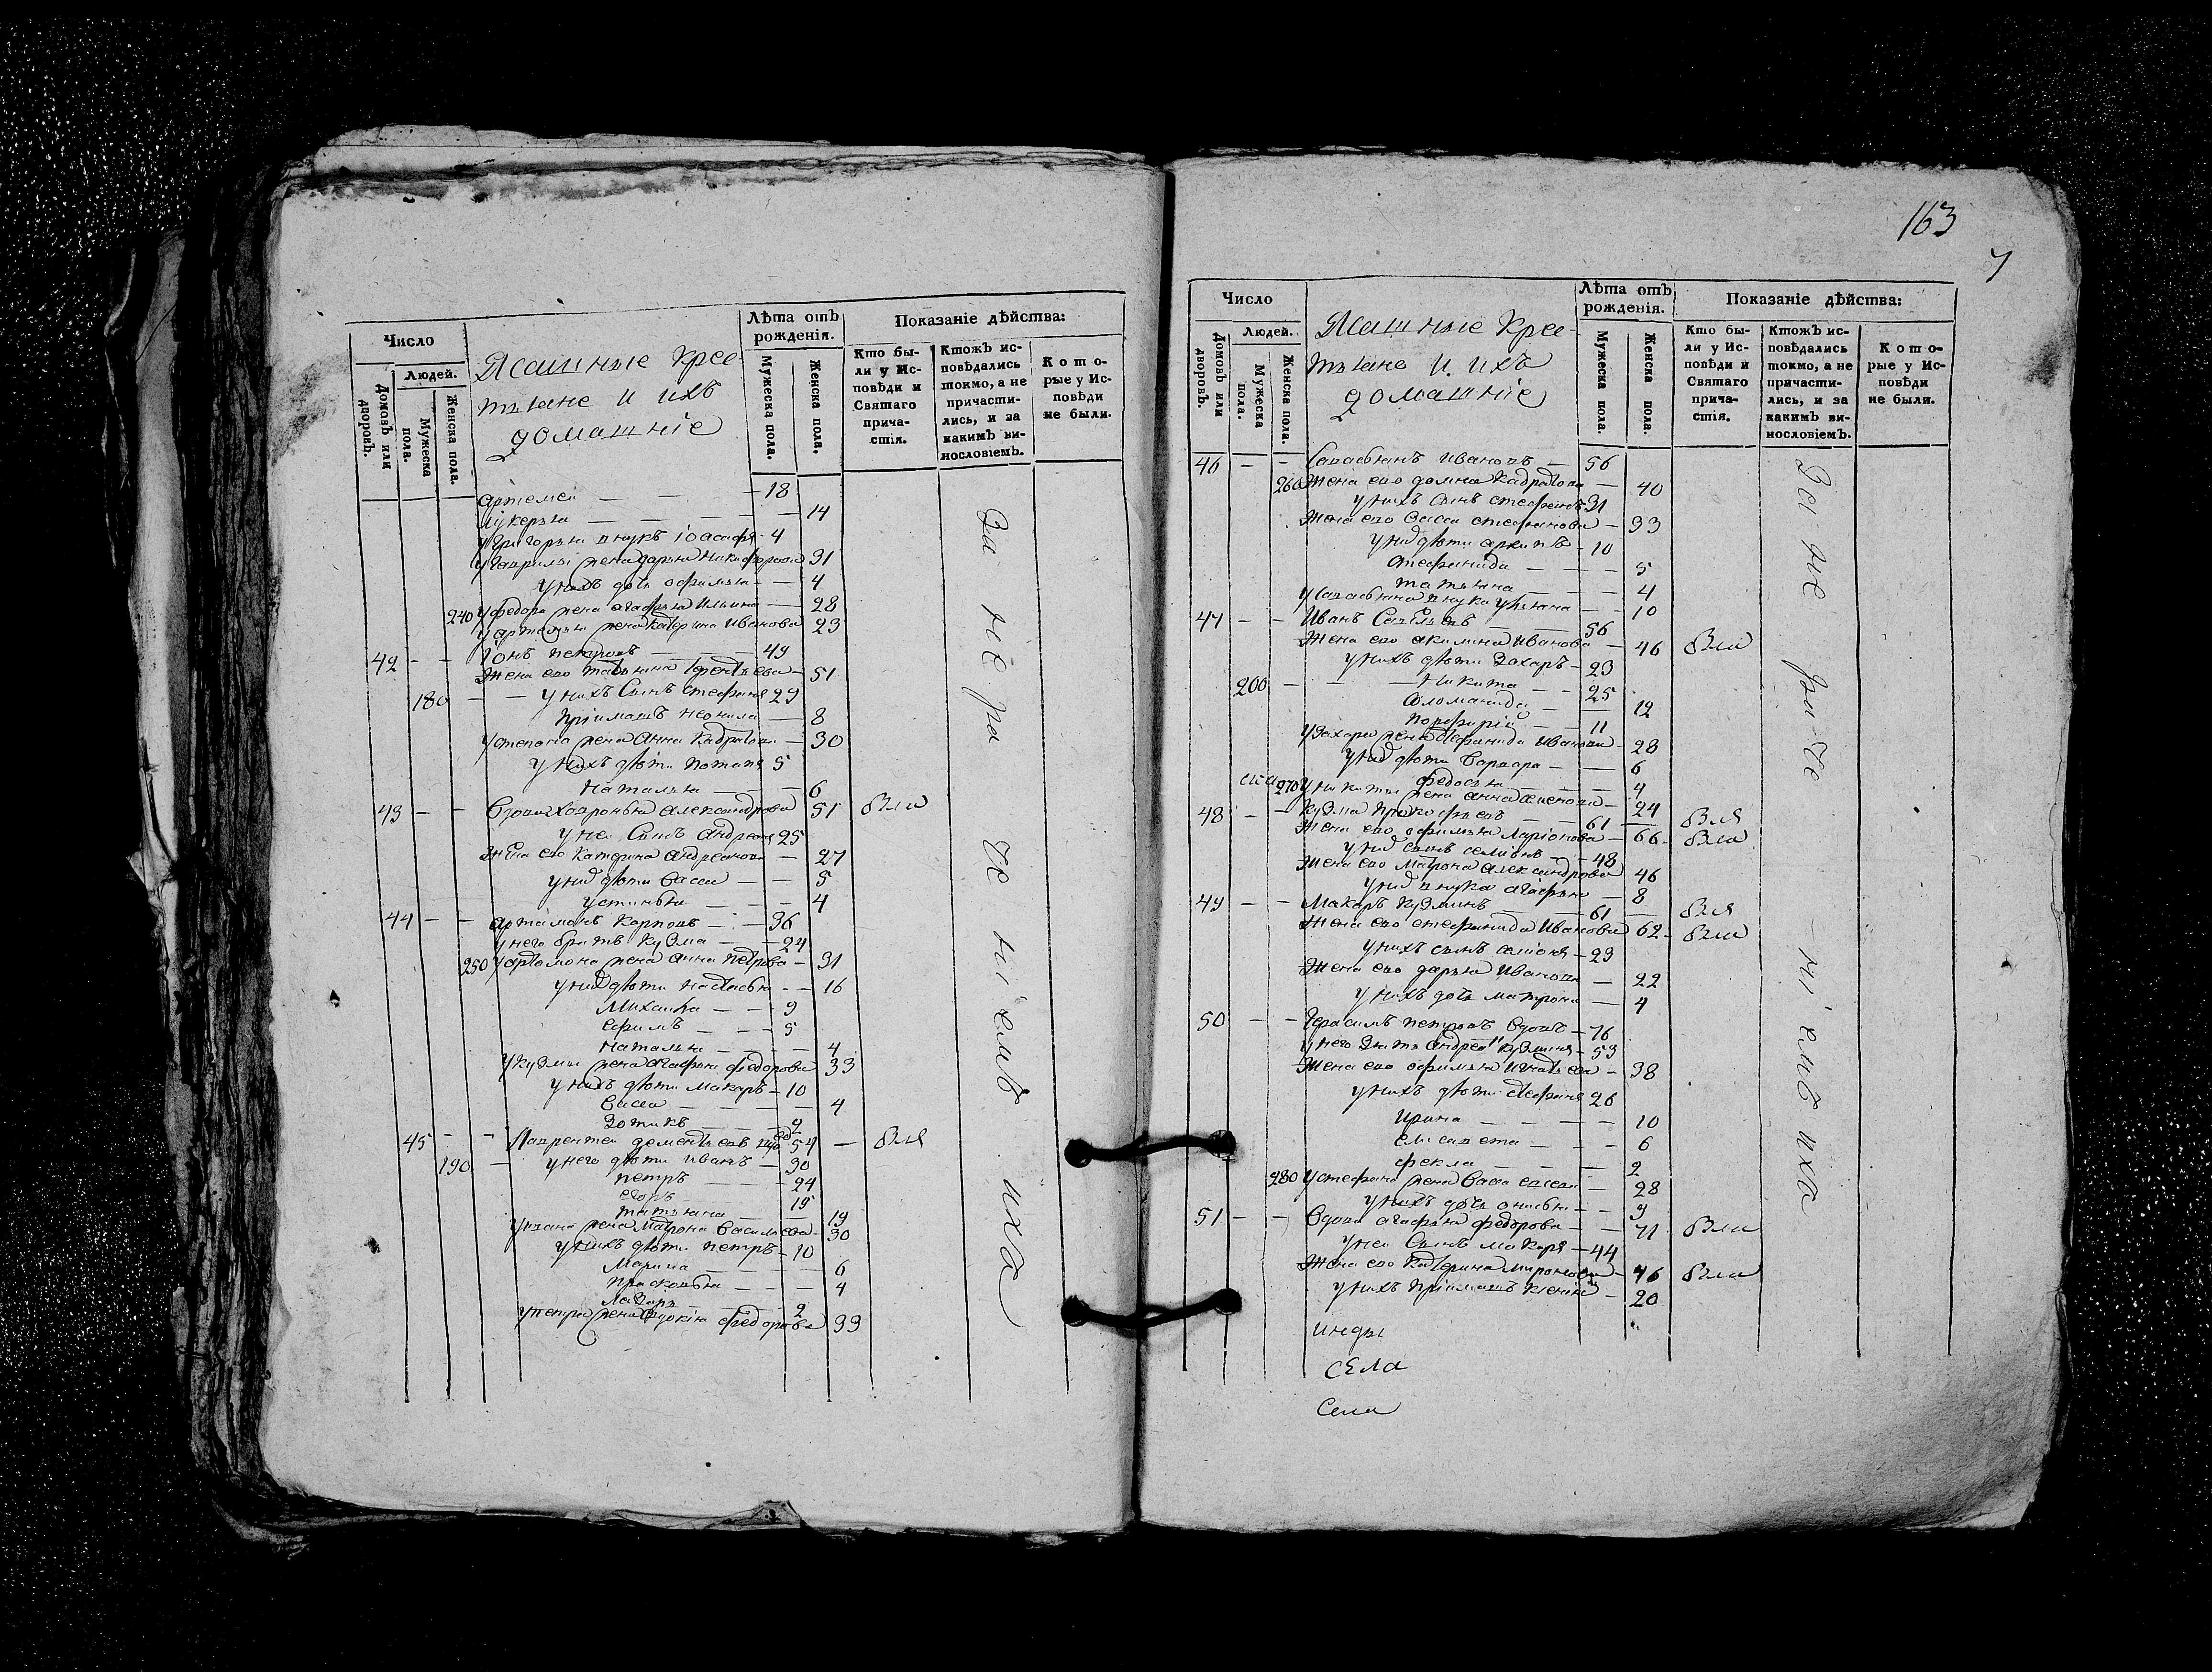 Число
Людей.
Домовъ или дворовъ.
Мужеска пола.
Женска пола.
Пашные крес-
тьяне и ихъ
домашніе
Лѣта отъ рожденія.
Мужеска пола.
Женска пола.
Показаніе дѣйства:
Кто бы-
ли у Ис-
повѣди и
Святаго
прича-
стія.
Ктожъ ис-
повѣдались
токмо, а не
причасти-
лись, и за
какимъ ви-
нословіемъ.
Кото-
рые у Ис-
повѣди
не были.
артемей — 18
лукерья — 14
у григорья внукъ іоасафъ 4
у гаврилы жена дарья никифорова 31
у нихъ дочь офимья — 4
240 у федора жена агафья ильина — 28
у артемья жена катерина иванова 23
42 — — іонъ петровъ — 49
жена ево татьяна терентьева — 51
180 — — у нихъ сынъ стефанъ 29
пріимышъ неонила — 8
у степана жена анна кадратова — 30
у нихъ дѣти потапъ 5
наталья — 6
43 — — вдова ховронья александрова 51 бы ла
у неи сынъ андреянъ 25
жена ево катерина андреянова — 27
у нихъ дѣти васса — 5
устинья — 4
44 — — артамонъ карповъ — 36
у него братъ кузма — 24
250 у артомона жена анна петрова — 31
у нихъ дѣти настасья — 16
михаила — 9
ефимъ — 5
наталья — 4
у кузмы жена агафья федорова 33
у нихъ дѣти макаръ — 10
васса — 4
зотикъ — 2
45 — — лаврентей дементьевъ вдовъ 54 — былъ
190 — у него дѣти иванъ — 30
петръ — 24
егоръ — 15
татьяна — 19
у ивана жена матрона васильева 30
у нихъ дѣти петръ — 10
марина — 6
прасковья — 4
лазарь — 2
у петра жена евдокія федорова 33
за нера че ніемъ иха
163
7
Число
Людей.
Домовъ или дворовъ.
Мужеска пола.
Женска пола.
Пашные крес-
тьяне и ихъ
домашніе
Лѣта отъ рожденія.
Мужеска пола.
Женска пола.
Показаніе дѣйства:
Кто бы-
ли у Ис-
повѣди и
Святаго
прича-
стія.
Ктожъ ис-
повѣдались
токмо, а не
причасти-
лись, и за
какимъ ви-
нословіемъ.
Кото-
рые у Ис-
повѣди
не были.
46 — — савастьянъ ивановъ — 56
260 жена ево домна кадратова — 40
у нихъ сынъ стефанъ 31
жена ево васса стефанова — 33
у нихъ дѣти архипъ — 10
стефанида — 5
татьяна — 4
у савастьяна внука ульяна — 10
47 — — иванъ савельевъ — 56
жена ево акилина иванова — 46 была
у нихъ дѣти захаръ — 23
200 — никита — 25
соломанида — 12
порфирій — 11
у захара жена стефанида иванова 28
у нихъ дѣти варвара — 6
федосья — 4
270 у никиты жена анна семенова — 24
48 — — кузма прокофьевъ — 61 — былъ
жена ево офимья ларіонова — 66 — была
у нихъ сынъ семионъ — 48
жена ево матрона александрова 46
у нихъ внука агафья — 8
49 — — макаръ кузминъ — 61 — былъ
жена ево стефанида иванова 62 — была
у нихъ сынъ семіонъ — 23
жена ево дарья иванова — 22
у нихъ дочь матрона — 4
50 — — герасимъ петровъ вдовъ — 76
у него зять андрей кузминъ — 53
жена ево офимья игнатьева — 38
у нихъ дѣти стефанъ 26
ирина — 10
елисавета — 6
фекла — 2
280 у стефана жена васса — 28
у нихъ дочь анисья — 9
51 — — вдова агафья федорова — 71 была
у неи сынъ макаръ — 44
жена ево катерина миронова — 46 была
у нихъ пріимышъ ксенія — 20
за не ра-че -ніемъ иха
инды
СЕЛа
Села